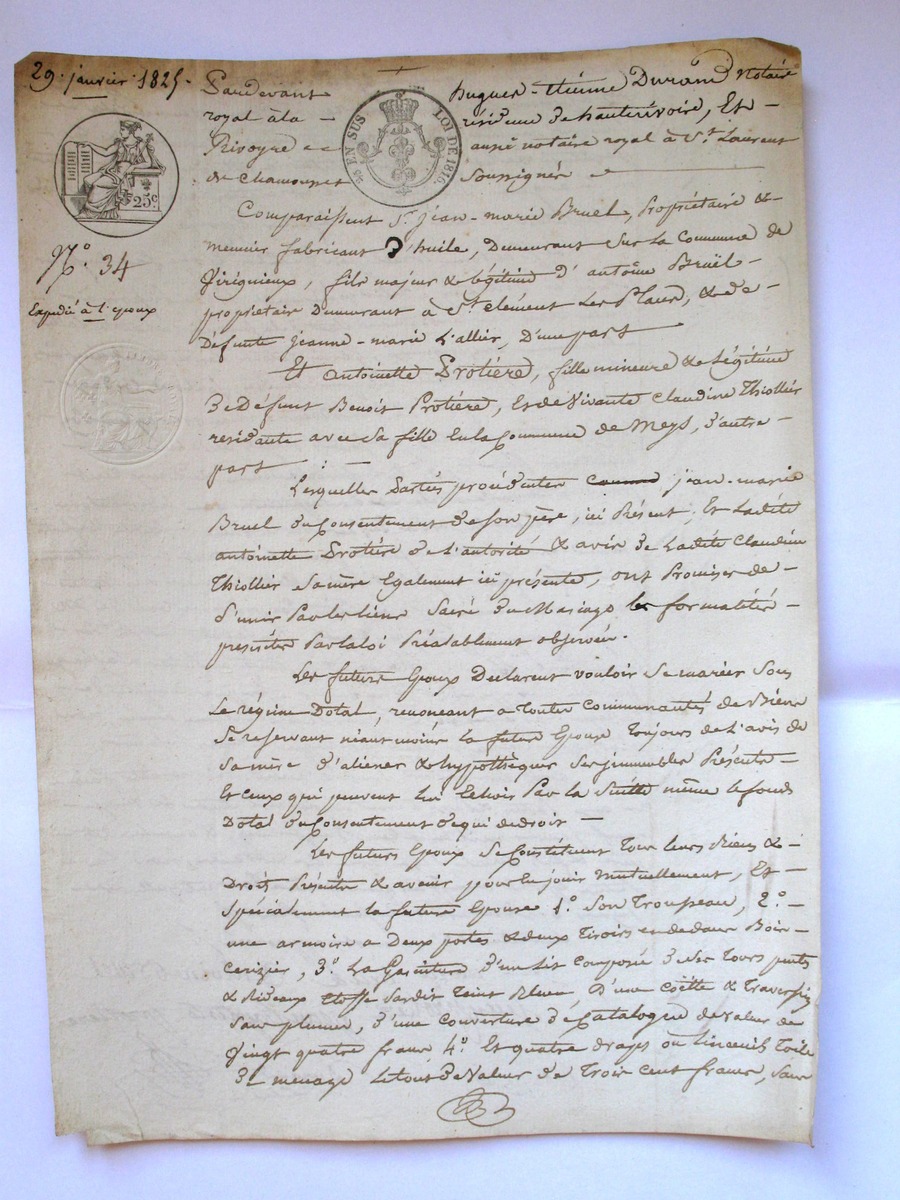 29. janvier 1825.
Pardevant Hugues-étienne Durand Notaire
royal à la résidence de hauterivoire, Et
Rivoyre aussi notaire royal à St. Laurent
de Chamousset Soussignés
EN SUS LOI DE 1816.
25c.
N.° 34
Expédié à l'époux
Comparaissent Sr. Jean-marie Bruel, Propriétaire &
meunier fabricant d'huile, Demeurant Sur la Commune de
Virignieux, fils majeur & légitime d'antoine Bruël
propriétaire Demeurant à St. Clément Les Places, & de
Défunte Jeanne-marie L'allier, D'une part
Et Antoinette Protière, fille mineure & Légitime
De Defunt Benoit Protière, Et de Vivante Claudine Thiollier
residante avec Sa fille En la Commune de Meys, d'autre
part
Lesquelles Parties procédantes jean-marie
Bruel du Consentement de son père, ici Présent, Et Ladite
antoinette Protière de L'autorité & avis de Ladite Claudine
Thiollier Sa mère Egalement ici présente, ont Promises de
S'unir Par les liens Sacré du Mariage les formalités
prescrites Par la loi Préalablement observées.
Les futurs Epoux Declarent vouloir Se marier Sous
Le régime Dotal, renonçant a Toutes Communautés de Biens
Se reservant néantmoins la future Epouse Toujours de L'avis de
Sa mère d'aliener & hypothéquer Ses immeubles Présents
Et ceux qui peuvent lui Echoir Par la Suitte même le fonds
Dotal du Consentement de qui de droit
Les futurs Epoux Se Constituent Tous leurs Biens &
Droits Présents & avenir pour en jouir Mutuellement, Et
Spécialement la future Epouse 1.° Son Trousseau, 2.°
une armoire a Deux portes & deux Tiroirs en dedans Bois
Cerizier, 3.° La Garniture d'un Lit composé de Ses Tours pents
& Rideaux Etoffe Sardis Teint Bleue, D'une Coëtte & Traversin
Sans plumes, d'une Couverture de Catalogne de Valeur de
Vingt quatre francs 4.° Et quatre draps ou Linceuils Toile
de menage Le tout de Valeur de Trois cent francs, Sans